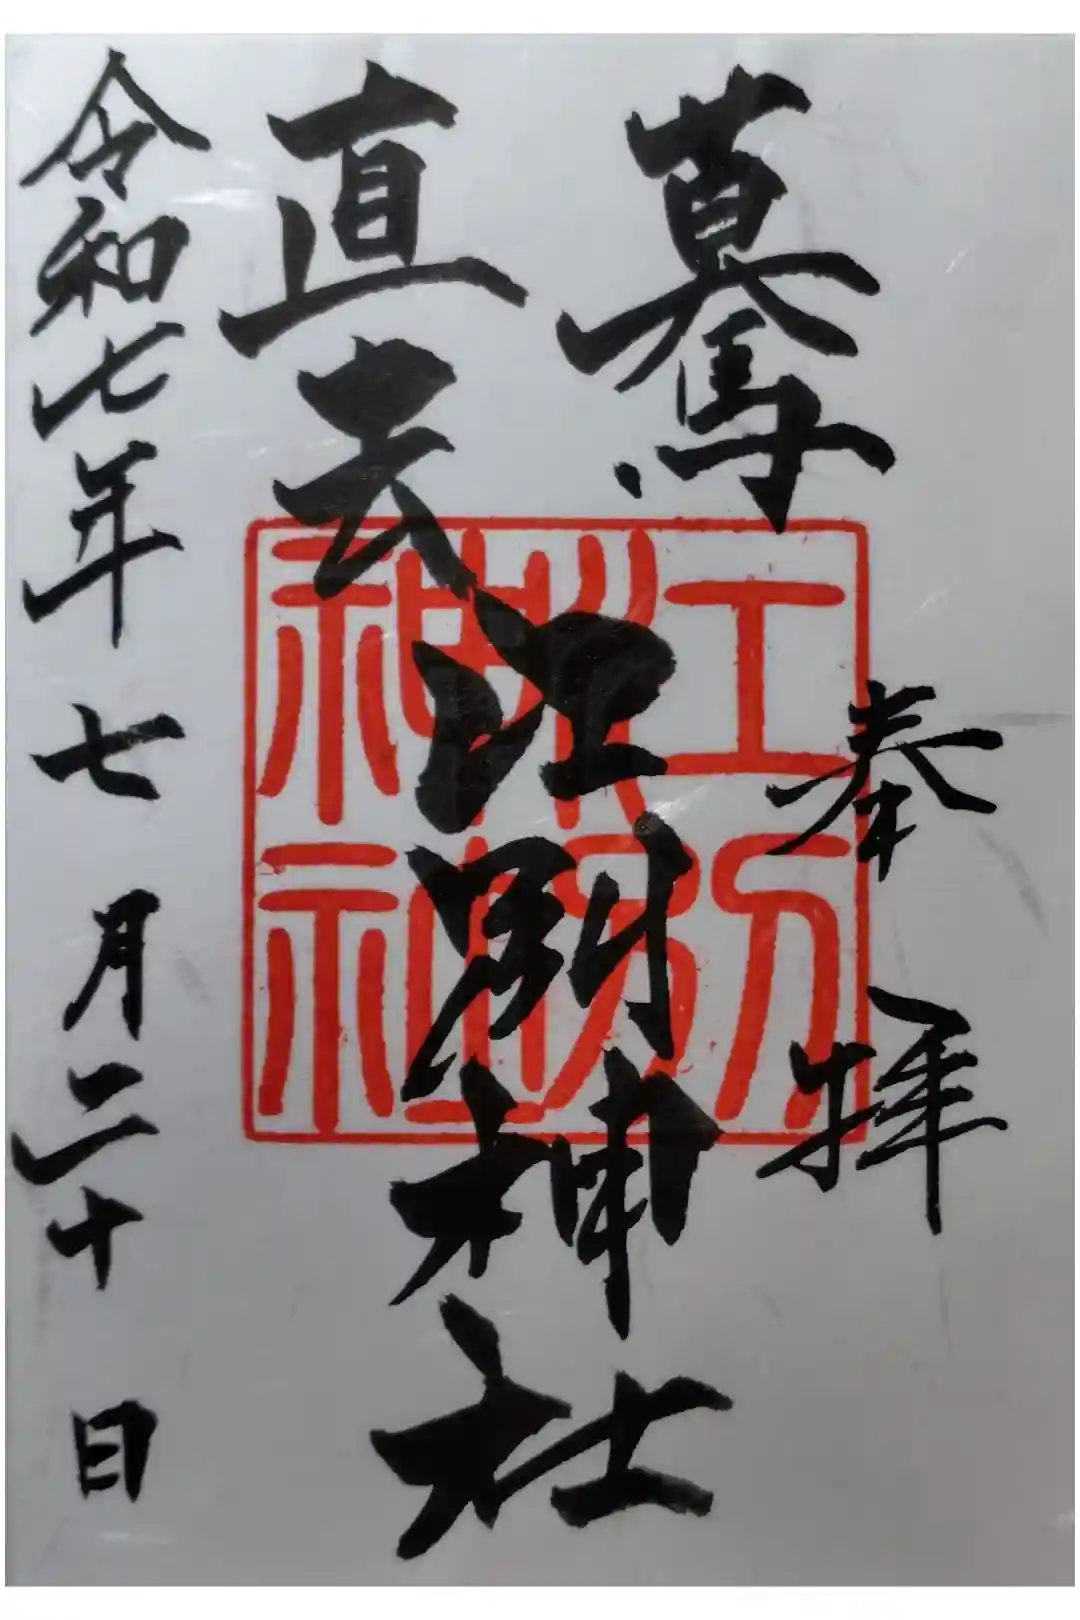 奉拝
驀
直去
江別神社
江別
神社
令和七年七月二十日